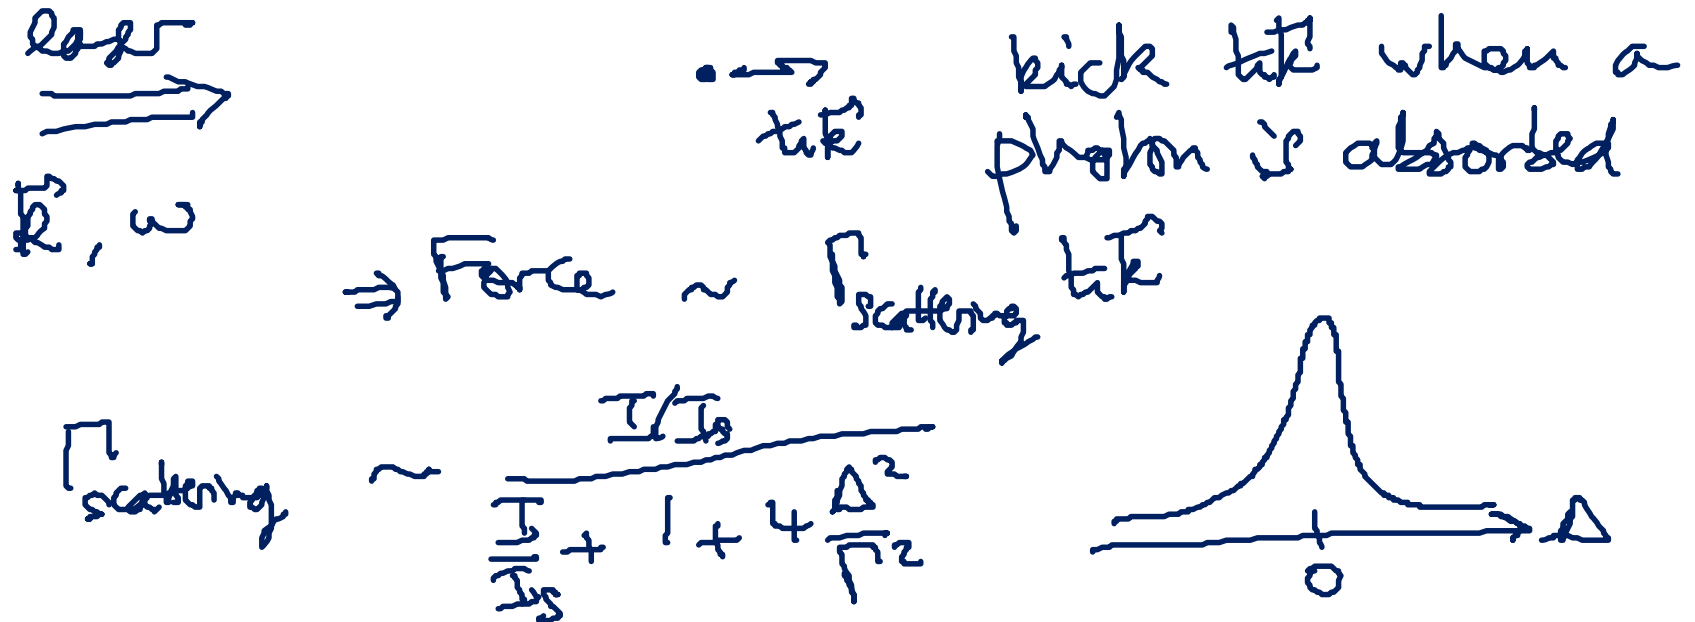 laser
kick ħk⃗ when a
ħk⃗
photon is absorbed
k⃗, ω
⇒ Force ~ Γscattering ħk⃗
Γscattering ~ (I/Is) / (I/Is + 1 + 4 Δ²/Γ²)
Δ
0